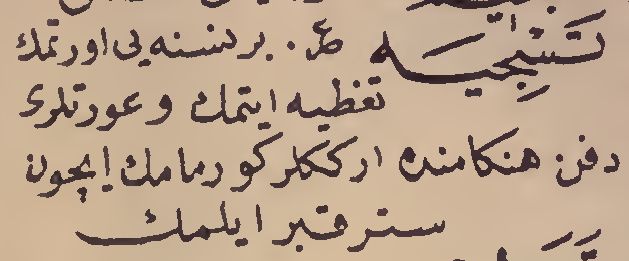 تَسْجِيَه ع. بر نسنه یی اورتمك
تغطیه ایتمك و عورتلری
دفن هنكامنده ارككلر كورمامك ایچون
ستر قبر ایلمك